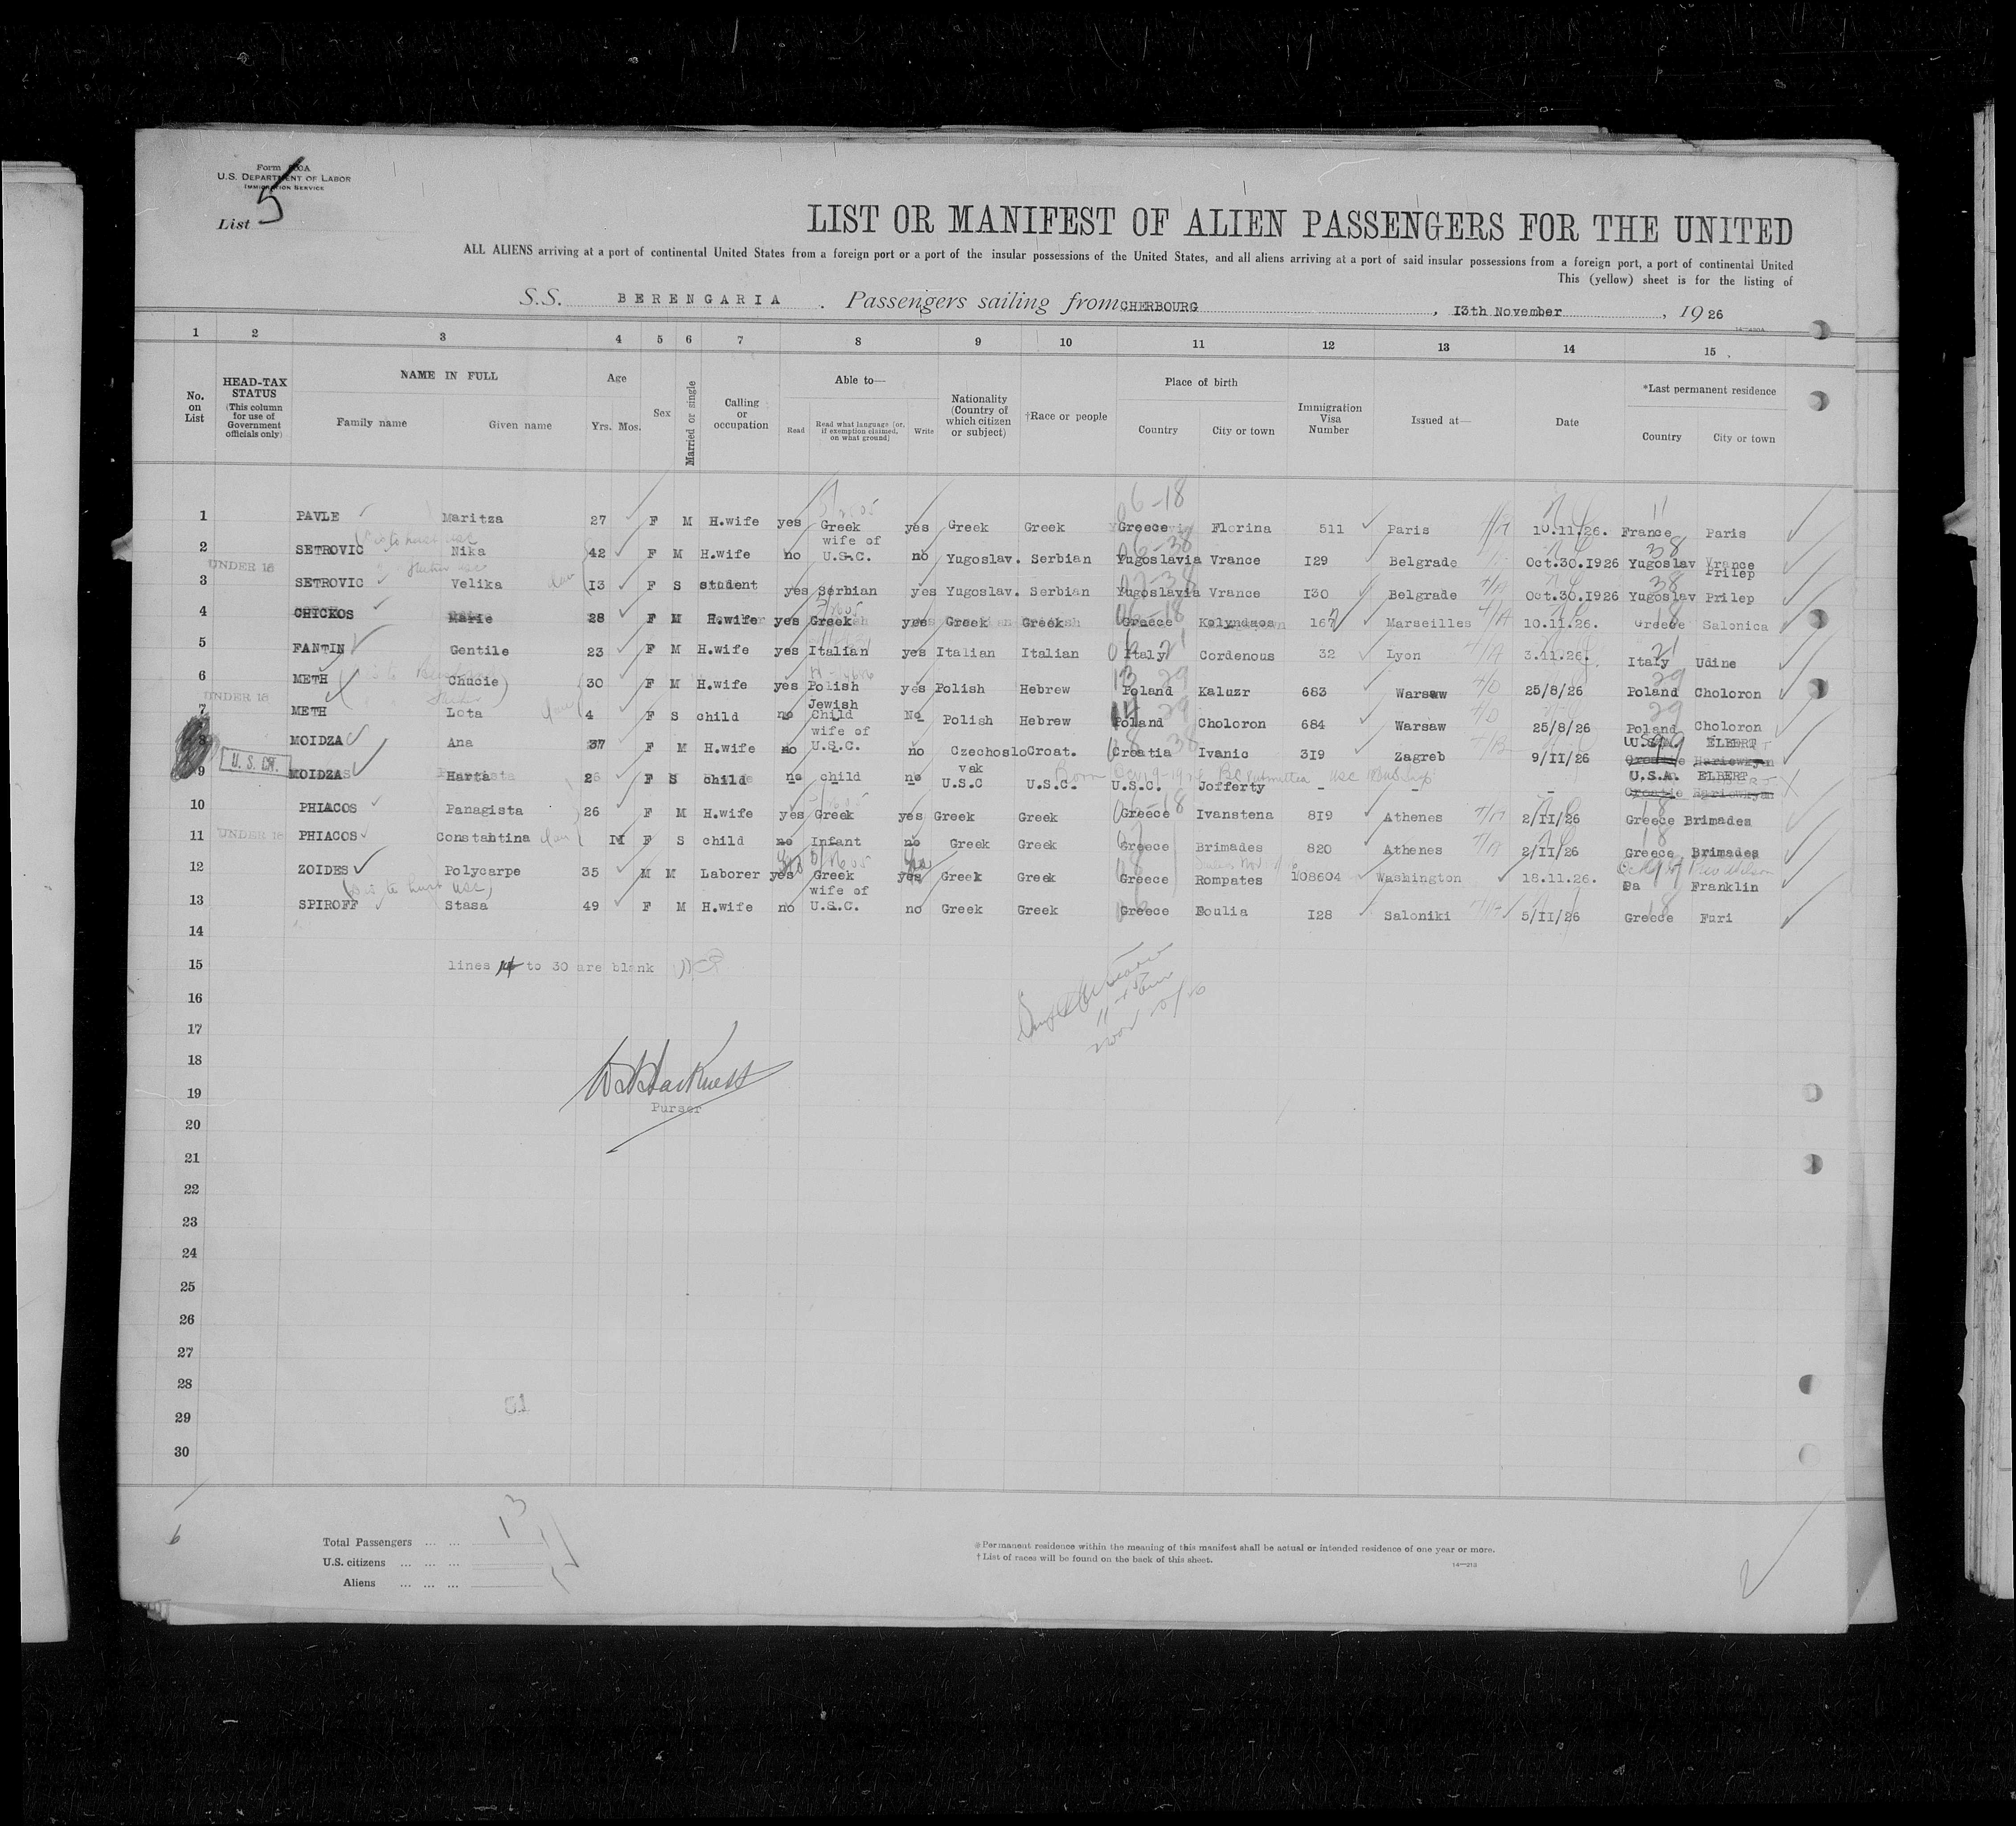 Form 500A
U.S. DEPARTMENT OF LABOR
IMMIGRATION SERVICE
List 5
LIST OR MANIFEST OF ALIEN PASSENGERS FOR THE UNITED
ALL ALIENS arriving at a port of continental United States from a foreign port or a port of the insular possessions of the United States, and all aliens arriving at a port of said insular possessions from a foreign port, a port of continental United
This (yellow) sheet is for the listing of
S.S. BERENGARIA . Passengers sailing from CHERBOURG , 13th November , 1926
1 2 3 4 5 6 7 8 9 10 11 12 13 14 15
No. on List
HEAD-TAX STATUS (This column for use of Government officials only)
NAME IN FULL Family name Given name
Age Yrs. Mos.
Sex
Married or single
Calling or occupation
Able to— Read Read what language (or, if exemption claimed, on what ground) Write
Nationality (Country of which citizen or subject)
†Race or people
Place of birth Country City or town
Immigration Visa Number
Issued at—
Date
*Last permanent residence Country City or town
1 PAVLE Maritza 27 F M H.wife yes Greek yes Greek Greek Greece Florina 511 Paris 10.11.26. France Paris
2 SETROVIC Nika 42 F M H.wife no wife of U.S.C. no Yugoslav. Serbian Yugoslavia Vrance I29 Belgrade Oct.30.1926 Yugoslav Vrance Prilep
3 UNDER 16 SETROVIC Velika dau I3 F S student yes Serbian yes Yugoslav. Serbian Yugoslavia Vrance I30 Belgrade Oct.30.1926 Yugoslav Prilep
4 CHICKOS Marie 28 F M H.wife yes Greek yes Greek Greek Greece Kolyndaos 167 Marseilles 10.11.26. Greece Salonica
5 FANTIN Gentile 23 F M H.wife yes Italian yes Italian Italian Italy Cordenous 32 Lyon 3.11.26. Italy Udine
6 METH Chucie 30 F M H.wife yes Polish Jewish yes Polish Hebrew Poland Kaluzr 683 Warsaw 25/8/26 Poland Choloron
7 UNDER 16 METH Lota dau 4 F S child no Child No Polish Hebrew Poland Choloron 684 Warsaw 25/8/26 Poland Choloron
8 MOIDZA Ana 37 F M H.wife no wife of U.S.C. no Czechoslovak Croat. Croatia Ivanic 3I9 Zagreb 9/II/26 U.S.A. ELBERT
9 U. S. CIT. MOIDZA Marta 2 F S child no child no U.S.C U.S.C. U.S.C. Jofferty - - - U.S.A. ELBERT
10 PHIACOS Panagista 26 F M H.wife yes Greek yes Greek Greek Greece Ivanstena 8I9 Athenes 2/II/26 Greece Brimades
11 UNDER 16 PHIACOS Constantina dau II F S child no Infant no Greek Greek Greece Brimades 820 Athenes 2/II/26 Greece Brimades
12 ZOIDES Polycarpe 35 M M Laborer yes Greek yes Greek Greek Greece Rompates I08604 Washington 18.11.26. Pa Franklin
13 SPIROFF Stasa 49 F M H.wife no wife of U.S.C. no Greek Greek Greece Boulia I28 Saloniki 5/II/26 Greece Furi
14
15 lines 14 to 30 are blank
16
17
18
19
Purser
20
21
22
23
24
25
26
27
28
29
30
Total Passengers ... ... 13
U.S. citizens ... ... ... 1
Aliens ... ... ...
*Permanent residence within the meaning of this manifest shall be actual or intended residence of one year or more.
†List of races will be found on the back of this sheet.
14—213